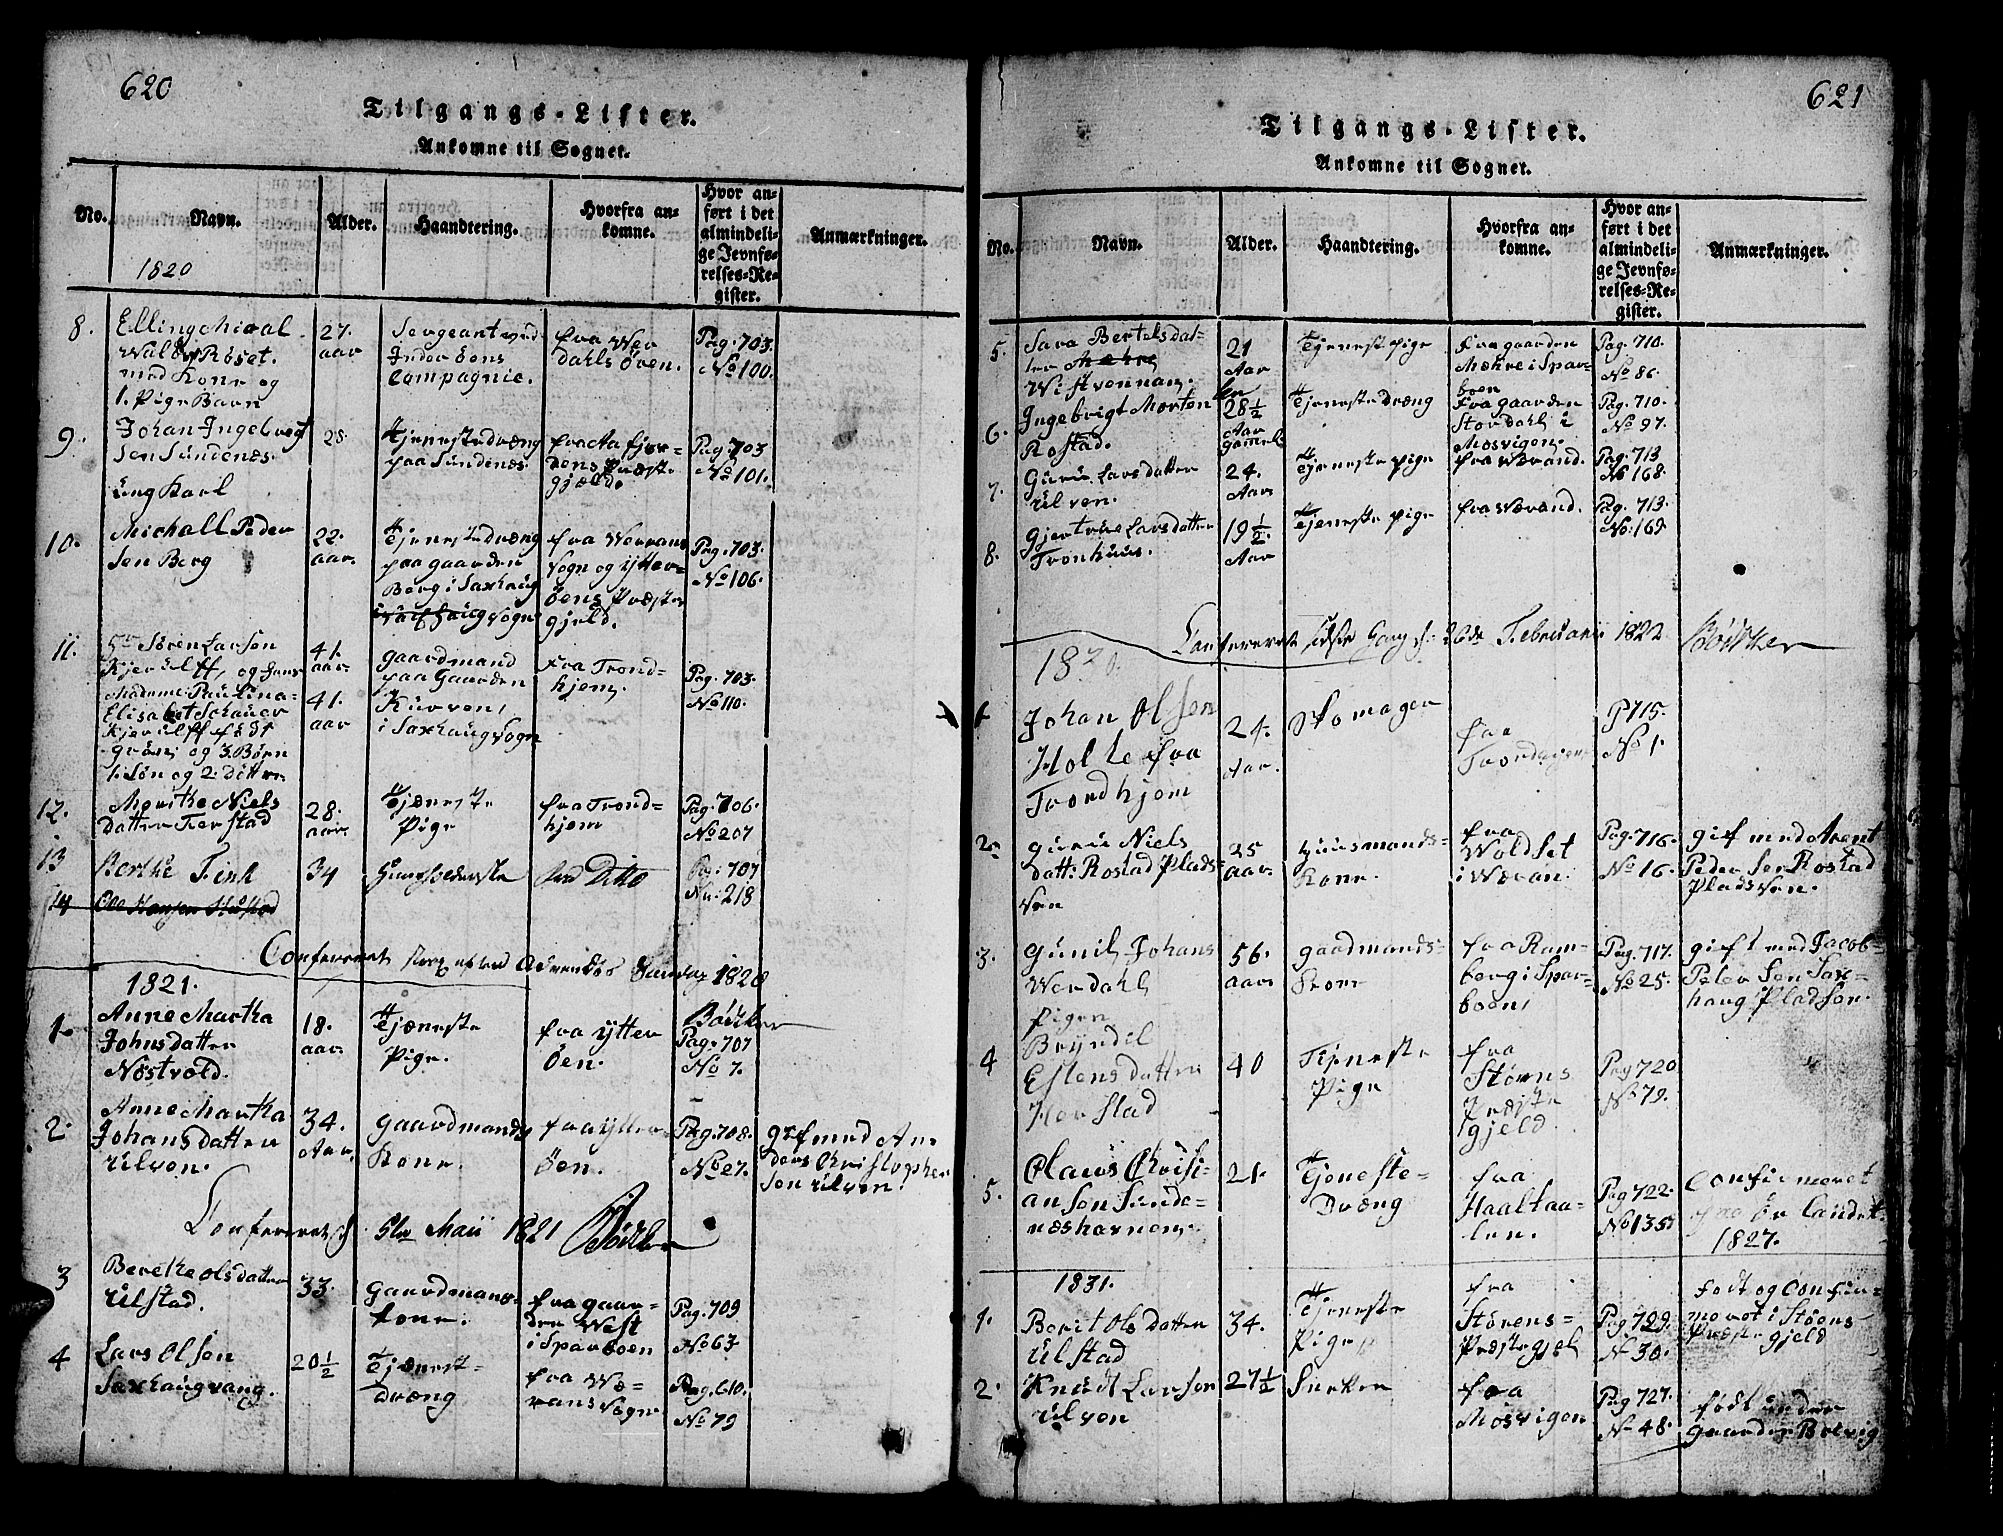 620
Tilgangs-Lister.
Ankomne til Sognet.
No.
Navn.
Alder.
Haandtering.
Hvorfra an-
komne.
Hvor an-
ført i det
almindeli-
ge Jevnfø-
relses-Re-
gister.
Anmærkninger.
1820
8.
Elling
Røset.
med Kone og
1. Pige Barn
27.
aar
Sergeant ved
Inderöens
Compagnie.
fra Wer
dahls Ören.
Pag: 703.
No 100.
9.
Johan Ingebregt
sen Sundenæs.
ung Karl
28.
Tjenestedræng
paa Sundenæs
Pag: 703
No 101.
10.
Michall Peder
sen Berg
22.
aar.
Tjenestedræng
paa gaarden
Berg i Saxhaug
fra Werrans
Sogn og ytter-
öens Præste
gjeld.
Pag: 703.
No 106.
11.
Sören Larsen
Kjerulff, og hans
Madame Paulina
Elisabet Schauer
Kjerulff født
og 3 Börn
1. Sön og 2. döttre.
41.
aar.
41.
aar
gaardmand
paa Gaarden
i Saxhaug Sogn
Fra Trond-
hjem.
Pag: 703.
No 110.
12.
Marithe Niels
datter Fierstad
28.
aar.
Tjæneste
Pige
fra Trond-
hjem
Pag: 706.
No 207
13
Berthe Fink
34
fra Ditto
Pag: 707
No: 218
14
Ole Hansen
Confereret
1820
1821.
1.
Anne Martha
Johnsdatter
Nöstvold.
18.
aar.
Tjæneste
Pige.
fra ytter
öen.
Pag: 707
No 7.
2.
Anne Martha
Johansdatter
Ulven.
34.
Aar.
Gaardmands
Kone.
fra ytter
öen.
Pag. 708.
No 27.
gift med An
ders Christopher
sen Ulven.
Confereret
Maii 1821
3
Berethe olsdatter
Ulstad.
33.
Gaardmans-
kone.
fra gaar-
den West
i Sparboen
Pag: 709
No 63
4
Lars Olsen
Saxhaugvang.
20 1/2
Tjænest-
Dræng
fra We-
rans Sogn
Pag. 610.
No 79
621
Tilgangs-Lister.
Ankomne til Sognet.
No.
Navn.
Alder.
Haandtering.
Hvorfra an-
komne.
Hvor an-
ført i det
almindeli-
ge Jevnfø-
relses-Re-
gister.
Anmærkninger.
5.
Sara Bertelsdat-
ter Mæhre
21
Aar
Tjenestpige
Fra gaarden
Mæhre i Spar-
boen
Pag: 710.
No 86.
6.
Ingebrigt Morten
Rostad.
28 1/2
Aar
gammel
Tjenestedræng
Fra gaarden
Stordahl i
Mosvigen.
Pag: 710.
No 97.
7.
Guru Larsdatter
Ulven.
24.
Aar
Tjeneste pige
fra Wærand.
Pag: 713
No 168.
8.
Gjertrue Larsdatter
Tronhuus.
19 1/2.
Aar
Tjeneste pige
fra Wærand.
Pag: 713.
No: 169
Confereret
26de Februarii 1822
1.
Johan Olsen
Holte fra
Trondhjem
24.
Aar.
Skomager
fra
P 715.
No 1.
2.
Guru Niels
datt: Rostad Plads-
25
aar.
Huusmands-
Kone.
fra
Woldset
i Wæran.
Pag: 716.
No 16.
gift med Arent
Peder Sen Rostad
Pladsven.
3.
Gunil Johans
Werdahl
56.
aar
gaardmands-
Kone
fra Ram-
berg i Spar-
boen,
Pag: 717.
No 25.
gift med Jacob-
Peter Sen Sax-
haug Pladsen.
4
Pigen
Bryndil
Estensdatter
Horstad
40
Tjeneste
Pige
fra
Störens
Præste
gjeld.
Pag 720
No 79.
5.
Claus Christi-
ansen Sunde-
næshavnen.
21.
Tjeneste-
Dræng
fra
Haaltaa-
len.
Pag 722.
No 135
Confirmeret
1827.
1831.
1.
Berit Olsdatter
Ulstad
34.
Tjeneste
Pige
fra
Störens-
Præstegjel
Pag 729.
N 30.
født og Confir-
meret i Störens
Præstegjeld
2.
Knudt Larsen
Ulven
27 1/2
fra
Mosvigen
Pag 727.
N 48.
født under
Gaarden Brevig